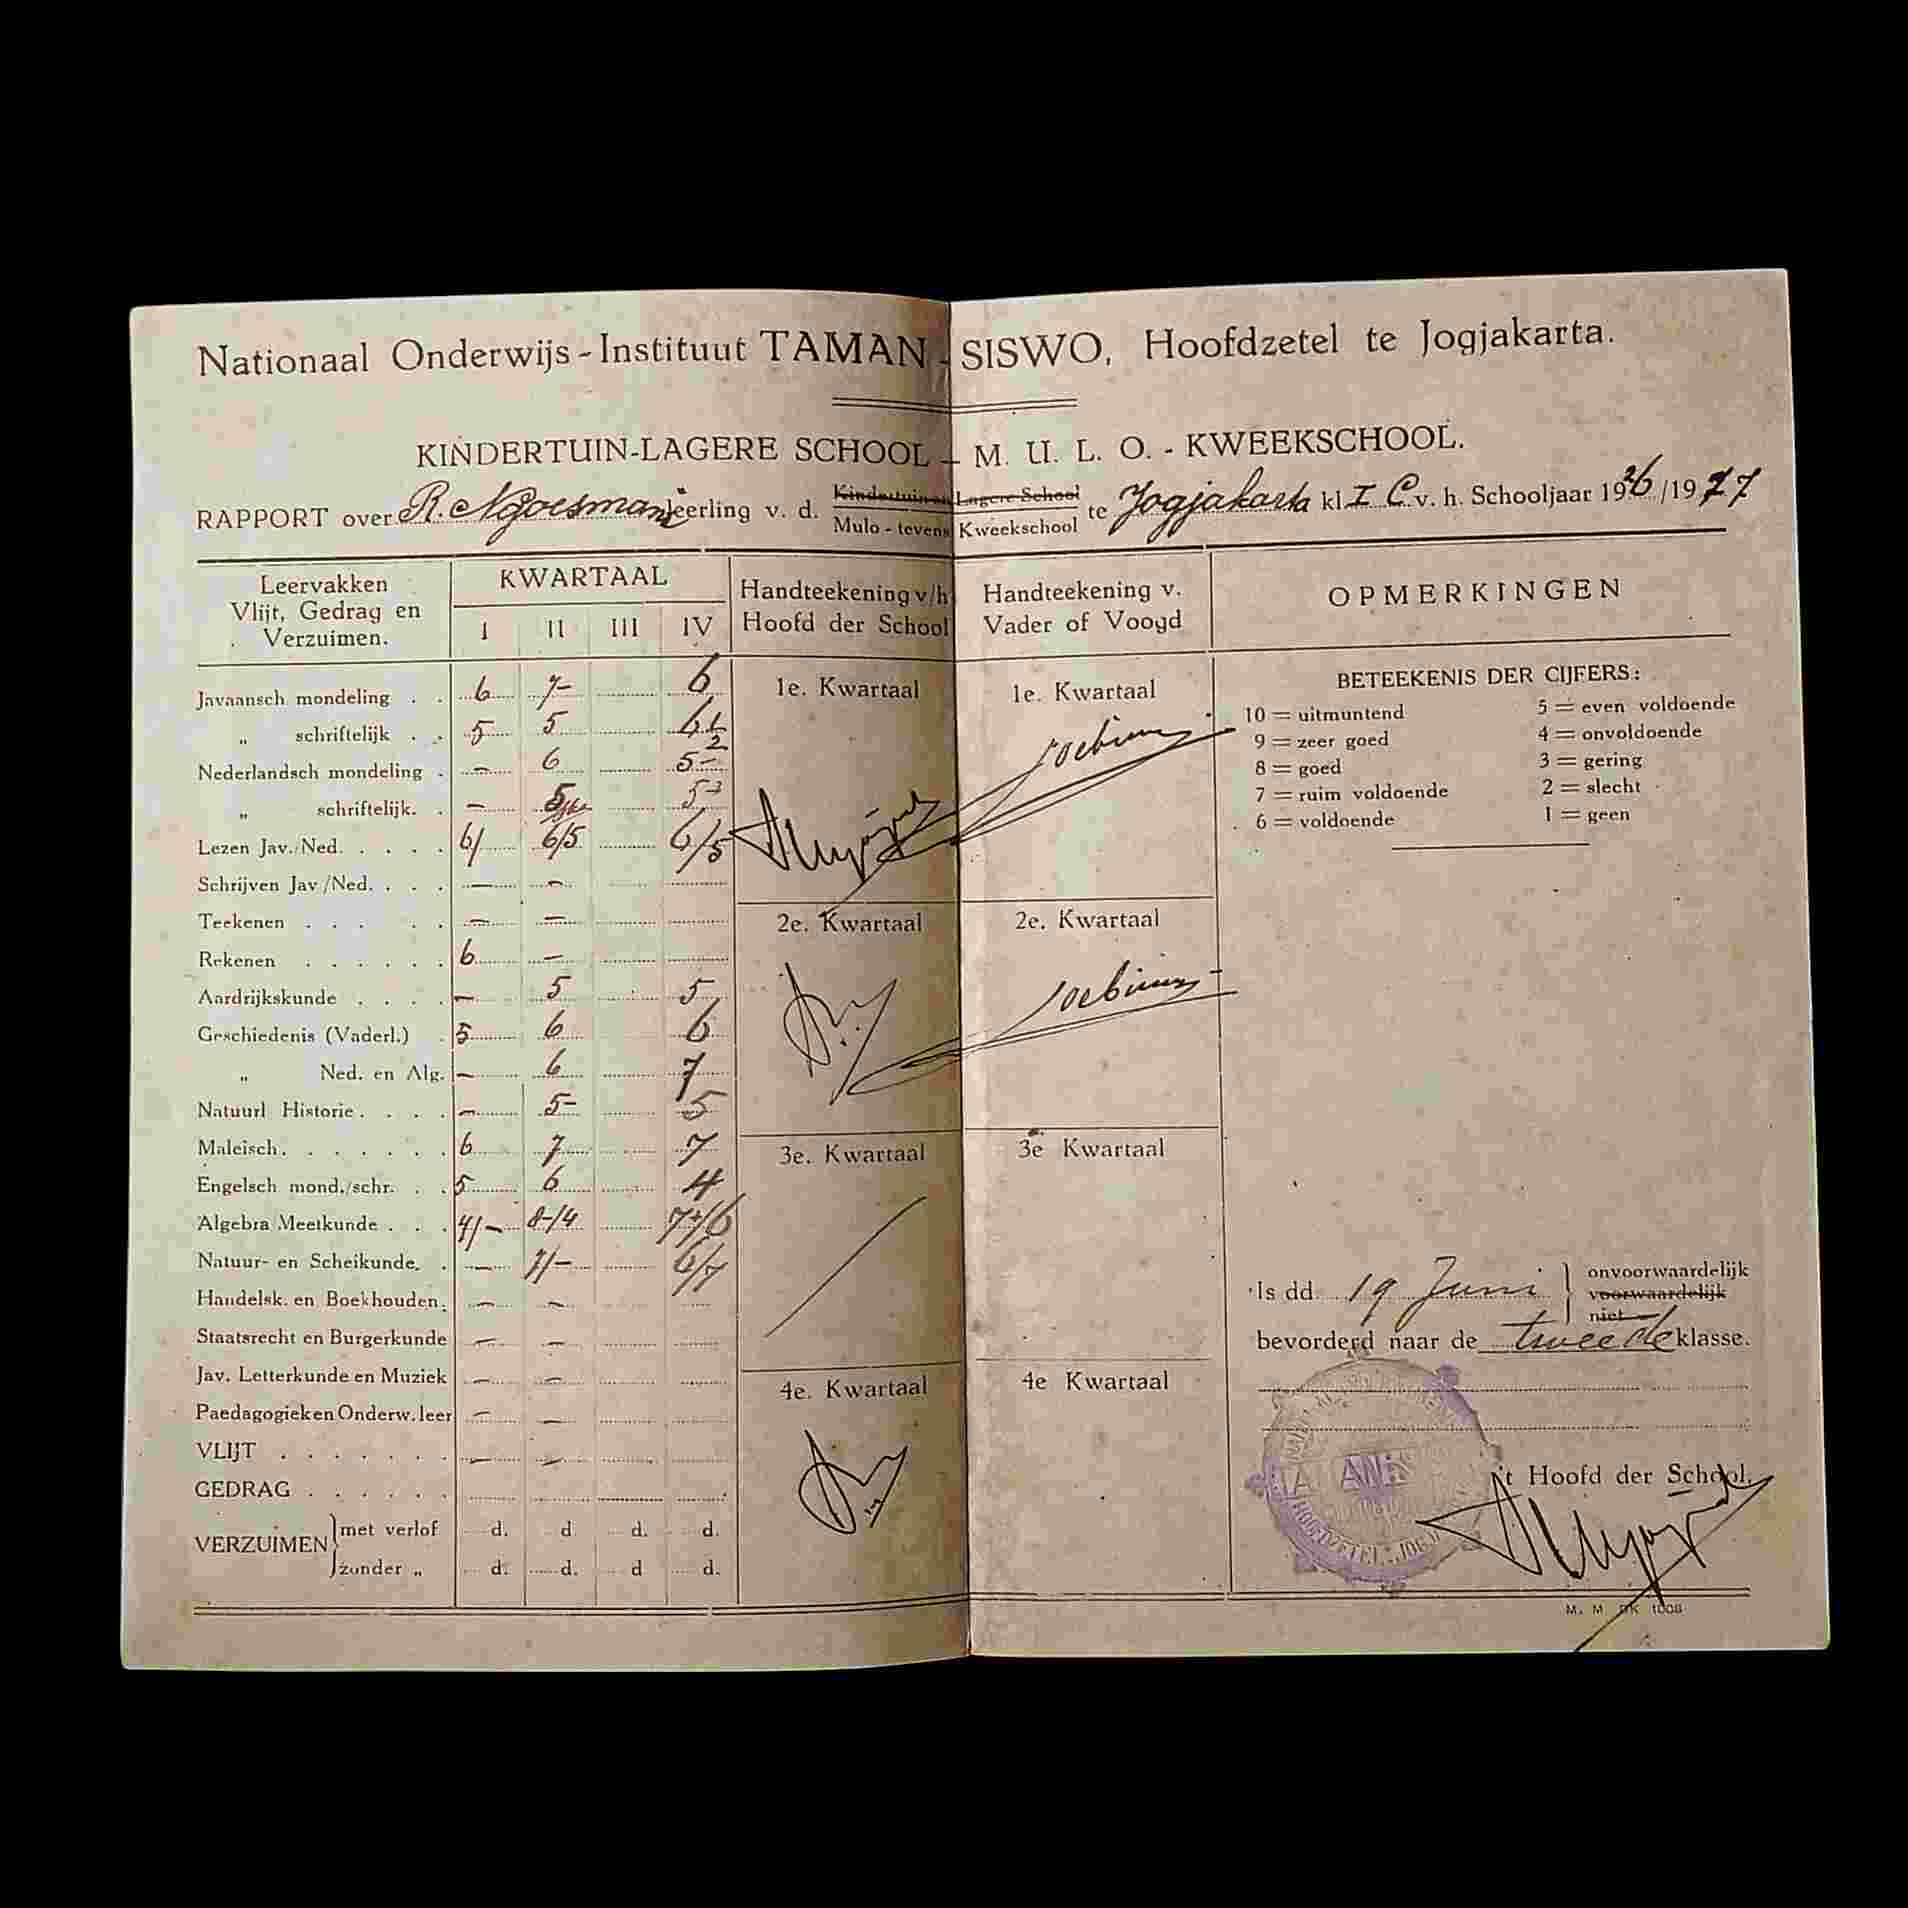 Nationaal Onderwijs-Instituut TAMAN-SISWO, Hoofdzetel te Jogjakarta.
KINDERTUIN-LAGERE SCHOOL – M. U. L. O. - KWEEKSCHOOL.
RAPPORT over R. Ngoesmani leerling v. d. Kindertuin en Lagere School te Jogjakarta kl I C v. h. Schooljaar 1926/1927
Mulo-tevens Kweekschool
Leervakken
Vlijt, Gedrag en
Verzuimen.
KWARTAAL
I II III IV
Handteekening v/h
Hoofd der School
Handteekening v.
Vader of Voogd
OPMERKINGEN
Javaansch mondeling . . 6 7- 6
„ schriftelijk . . 5 5
Nederlandsch mondeling . — 6 5-
„ schriftelijk. . — 5
Lezen Jav./Ned. . . . . 6/ 6/5 6/5
Schrijven Jav/Ned. . . . — —
Teekenen . . . . . — —
Rekenen . . . . . . 6 —
Aardrijkskunde . . . . — 5 5
Geschiedenis (Vaderl.) . 5 6 6
„ Ned. en Alg. — 6 7
Natuurl Historie. . . . — 5- 5
Maleisch. . . . . . . 6 7 7
Engelsch mond./schr. . . 5 6 4
Algebra Meetkunde . . . 4/- 8-/4 7+/6
Natuur- en Scheikunde. . — 7/- 6/7
Handelsk. en Boekhouden. — —
Staatsrecht en Burgerkunde — —
Jav. Letterkunde en Muziek — —
Paedagogiek en Onderw. leer — —
VLIJT . . . . . . . — —
GEDRAG . . . . . .
VERZUIMEN met verlof d. d d. d.
zonder „ d. d. d d.
1e. Kwartaal
2e. Kwartaal
3e. Kwartaal
4e. Kwartaal
1e. Kwartaal
Soebino
2e. Kwartaal
Soebino
3e Kwartaal
4e Kwartaal
BETEEKENIS DER CIJFERS:
10 = uitmuntend
9 = zeer goed
8 = goed
7 = ruim voldoende
6 = voldoende
5 = even voldoende
4 = onvoldoende
3 = gering
2 = slecht
1 = geen
Is dd. 19 Juni onvoorwaardelijk
voorwaardelijk
niet
bevorderd naar de tweede klasse.
't Hoofd der School.
M. M